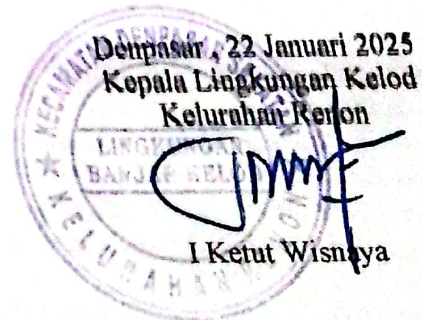 Denpasar , 22 Januari 2025
Kepala Lingkungan Kelod
Kelurahan Renon
KECAMATAN DENPASAR SELATAN
LINGKUNGAN
BANJAR KELOD
KELURAHAN RENON
I Ketut Wisnaya